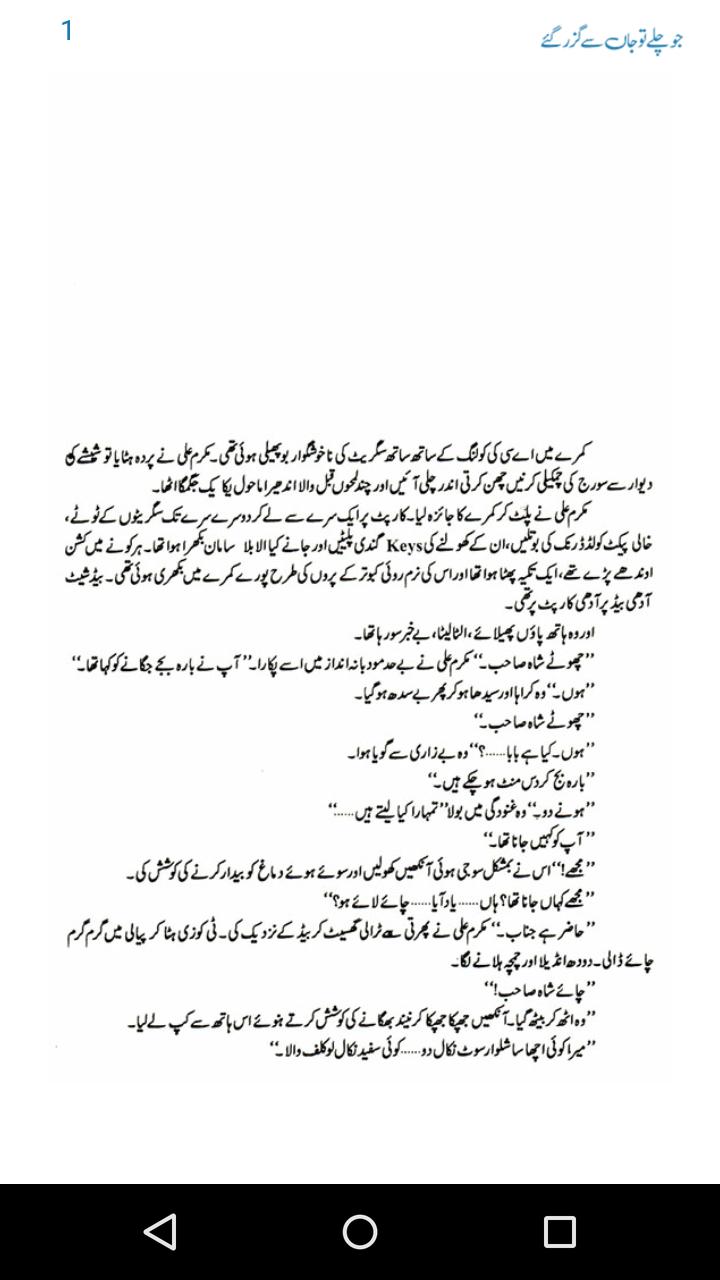 1
جو چلے تو جاں سے گزر گئے
کمرے میں اے سی کی کولنگ کے ساتھ ساتھ سگریٹ کی ناخوشگوار بو پھیلی ہوئی تھی۔ مکرم علی نے پردہ ہٹایا تو شیشے کی
دیوار سے سورج کی چمکیلی کرنیں چھن کرتی اندر چلی آئیں اور چند لمحوں قبل والا اندھیرا ماحول یکا یک جگمگا اٹھا۔
مکرم علی نے پلٹ کر کمرے کا جائزہ لیا۔ کارپٹ پر ایک سرے سے لے کر دوسرے سرے تک سگریٹوں کے ٹوٹے،
خالی پیکٹ کولڈ ڈرنک کی بوتلیں، ان کے کھولنے کی Keys گندی پلیٹیں اور جانے کیا الا بلا سامان بکھرا ہوا تھا۔ ہر کونے میں کشن
اوندھے پڑے تھے، ایک تکیہ پھٹا ہوا تھا اور اس کی نرم روئی کبوتر کے پروں کی طرح پورے کمرے میں بکھری ہوئی تھی۔ بیڈ شیٹ
آدھی بیڈ پر آدھی کارپٹ پر تھی۔
اور وہ ہاتھ پاؤں پھیلائے، الٹا لیٹا، بے خبر سو رہا تھا۔
”چھوٹے شاہ صاحب۔“ مکرم علی نے بے حد مودبانہ انداز میں اسے پکارا۔ ”آپ نے بارہ بجے جگانے کو کہا تھا۔“
”ہوں۔“ وہ کراہا اور سیدھا ہو کر پھر بے سدھ ہو گیا۔
”چھوٹے شاہ صاحب۔“
”ہوں۔ کیا ہے بابا......؟“ وہ بے زاری سے گویا ہوا۔
”بارہ بج کر دس منٹ ہو چکے ہیں۔“
”ہونے دو۔“ وہ غنودگی میں بولا ”تمہارا کیا لیتے ہیں......“
”آپ کو کہیں جانا تھا۔“
”مجھے!“ اس نے بمشکل سوجی ہوئی آنکھیں کھولیں اور سوئے ہوئے دماغ کو بیدار کرنے کی کوشش کی۔
”مجھے کہاں جانا تھا؟ ہاں......یاد آیا......چائے لائے ہو؟“
”حاضر ہے جناب۔“ مکرم علی نے پھرتی سے ٹرالی گھسیٹ کر بیڈ کے نزدیک کی۔ ٹی کوزی ہٹا کر پیالی میں گرم گرم
چائے ڈالی۔ دودھ انڈیلا اور چمچہ ہلانے لگا۔
”چائے شاہ صاحب!“
”وہ اٹھ کر بیٹھ گیا۔ آنکھیں جھپکا جھپکا کر نیند بھگانے کی کوشش کرتے ہوئے اس ہاتھ سے کپ لے لیا۔
”میرا کوئی اچھا سا شلوار سوٹ نکال دو......کوئی سفید نکال لو کلف والا۔“